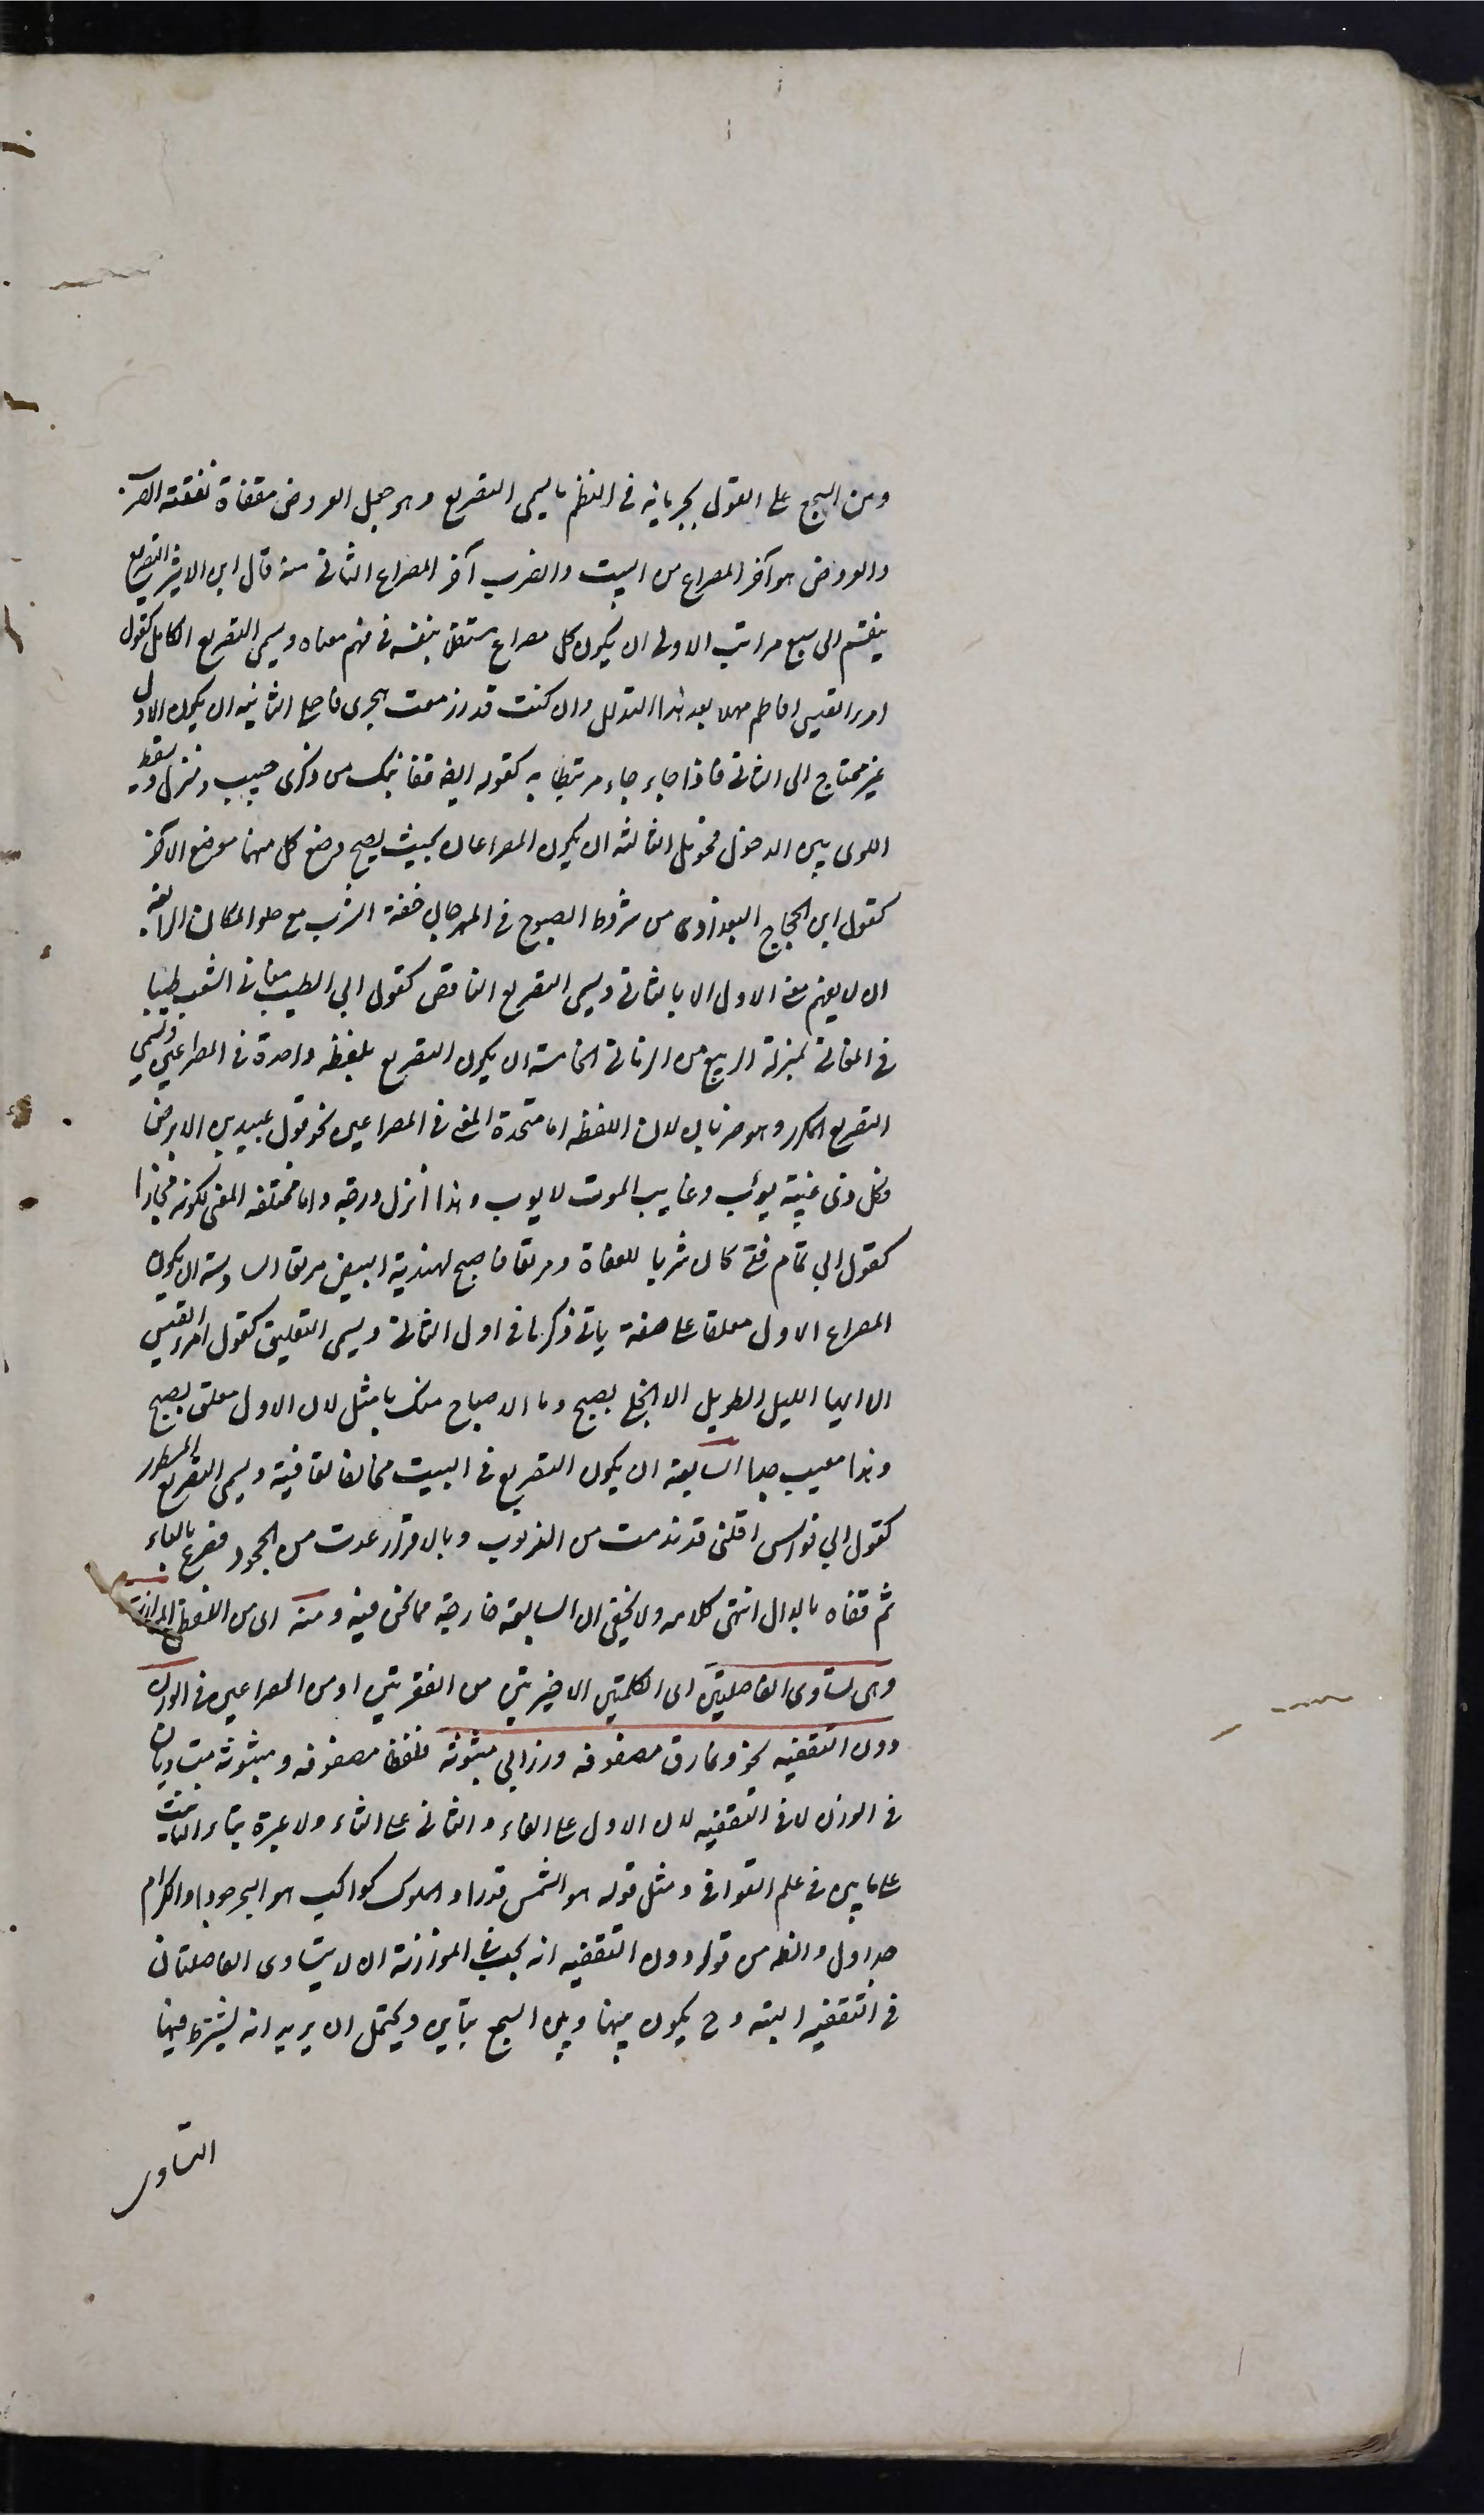 ومن السجع على القول بجريانه في النظم ما يسمى التصريع وهو جعل العروض مقفاة تقفية الضرب
والعروض هو آخر المصراع من البيت والضرب آخر المصراع الثاني منه قال ابن الاثير التصريع
ينقسم الى سبع مراتب الاولى ان يكون كل مصراع مستقلا بنفسه في فهم معناه ويسمى التصريع الكامل كقول
امرء القيس افاطم مهلا بعد هذا التدلل وان كنت قد ازمعت هجرى فاجملى الثانية ان يكون الاول
غير محتاج الى الثاني فاذا جاء جاء مرتبطا به كقوله ايضا قفا نبك من ذكرى حبيب ومنزل بسقط
اللوى بين الدخول فحومل الثالثة ان يكون المصراعان بحيث يصح وضع كل منهما موضع الآخر
كقول ابن الحجاج البغدادى من شروط الصبوح في المهرجان خفة الشرب مع خلو المكان الرابعة
ان لا يفهم معنى الاول الا بالثاني ويسمى التصريع الناقص كقول ابي الطيب مغاني الشعب طيبا
في المغاني بمنزلة الربيع من الزمان الخامسة ان يكون التصريع بلفظة واحدة في المصراعين ويسمى
التصريع المكرر وهو ضربان لان اللفظة اما متحدة المعنى في المصراعين نحو قول عبيد بن الابرص
وكل ذى غيبة يؤب وغايب الموت لا يوب وهذا انزل درجة واما مختلفة المعنى لكونه مجازا
كقول ابي تمام فتى كان شربا للعفاة ومرتعا فاصبح لهندية البيض مرتعا السادسة ان يكون
المصراع الاول معلقا على صفة ياتي ذكرها في اول الثاني ويسمى التعليق كقول امرء القيس
الا ايها الليل الطويل الا انجلى بصبح وما الاصباح منك بامثل لان الاول معلق بصبح
وهذا معيب جدا السابعة ان يكون التصريع في البيت مخالفا لقافيته ويسمى التصريع المشطور
كقول ابي نواس اقلني قد ندمت من الذنوب وبالاقرار عدت من الجحود فصرع بالباء
ثم قفاه بالدال انتهى كلامه ولا يخفى ان السابعة خارجة مما نحن فيه ومنه اى من اللفظى الموازنة
وهى تساوى الفاصلتين اى الكلمتين الاخيرتين من الفقرتين او من المصراعين في الوزن
دون التقفية نحو ونمارق مصفوفة وزرابي مبثوثة فلفظا مصفوفة ومبثوثة متساويان
في الوزن لا في التقفية لان الاول على الفاء والثاني على الثاء ولا عبرة بتاء التانيث
على ما بين في علم القوافي ومثل قوله هو الشمس قدرا والملوك كواكب هو البحر جودا والكرام
جداول والظ من قوله دون التقفية انه يجب في الموازنة ان لا يتساوى الفاصلتان
في التقفية البتة وح يكون بينها وبين السجع تباين ويحتمل ان يريد انه يشترط فيها
التساوى